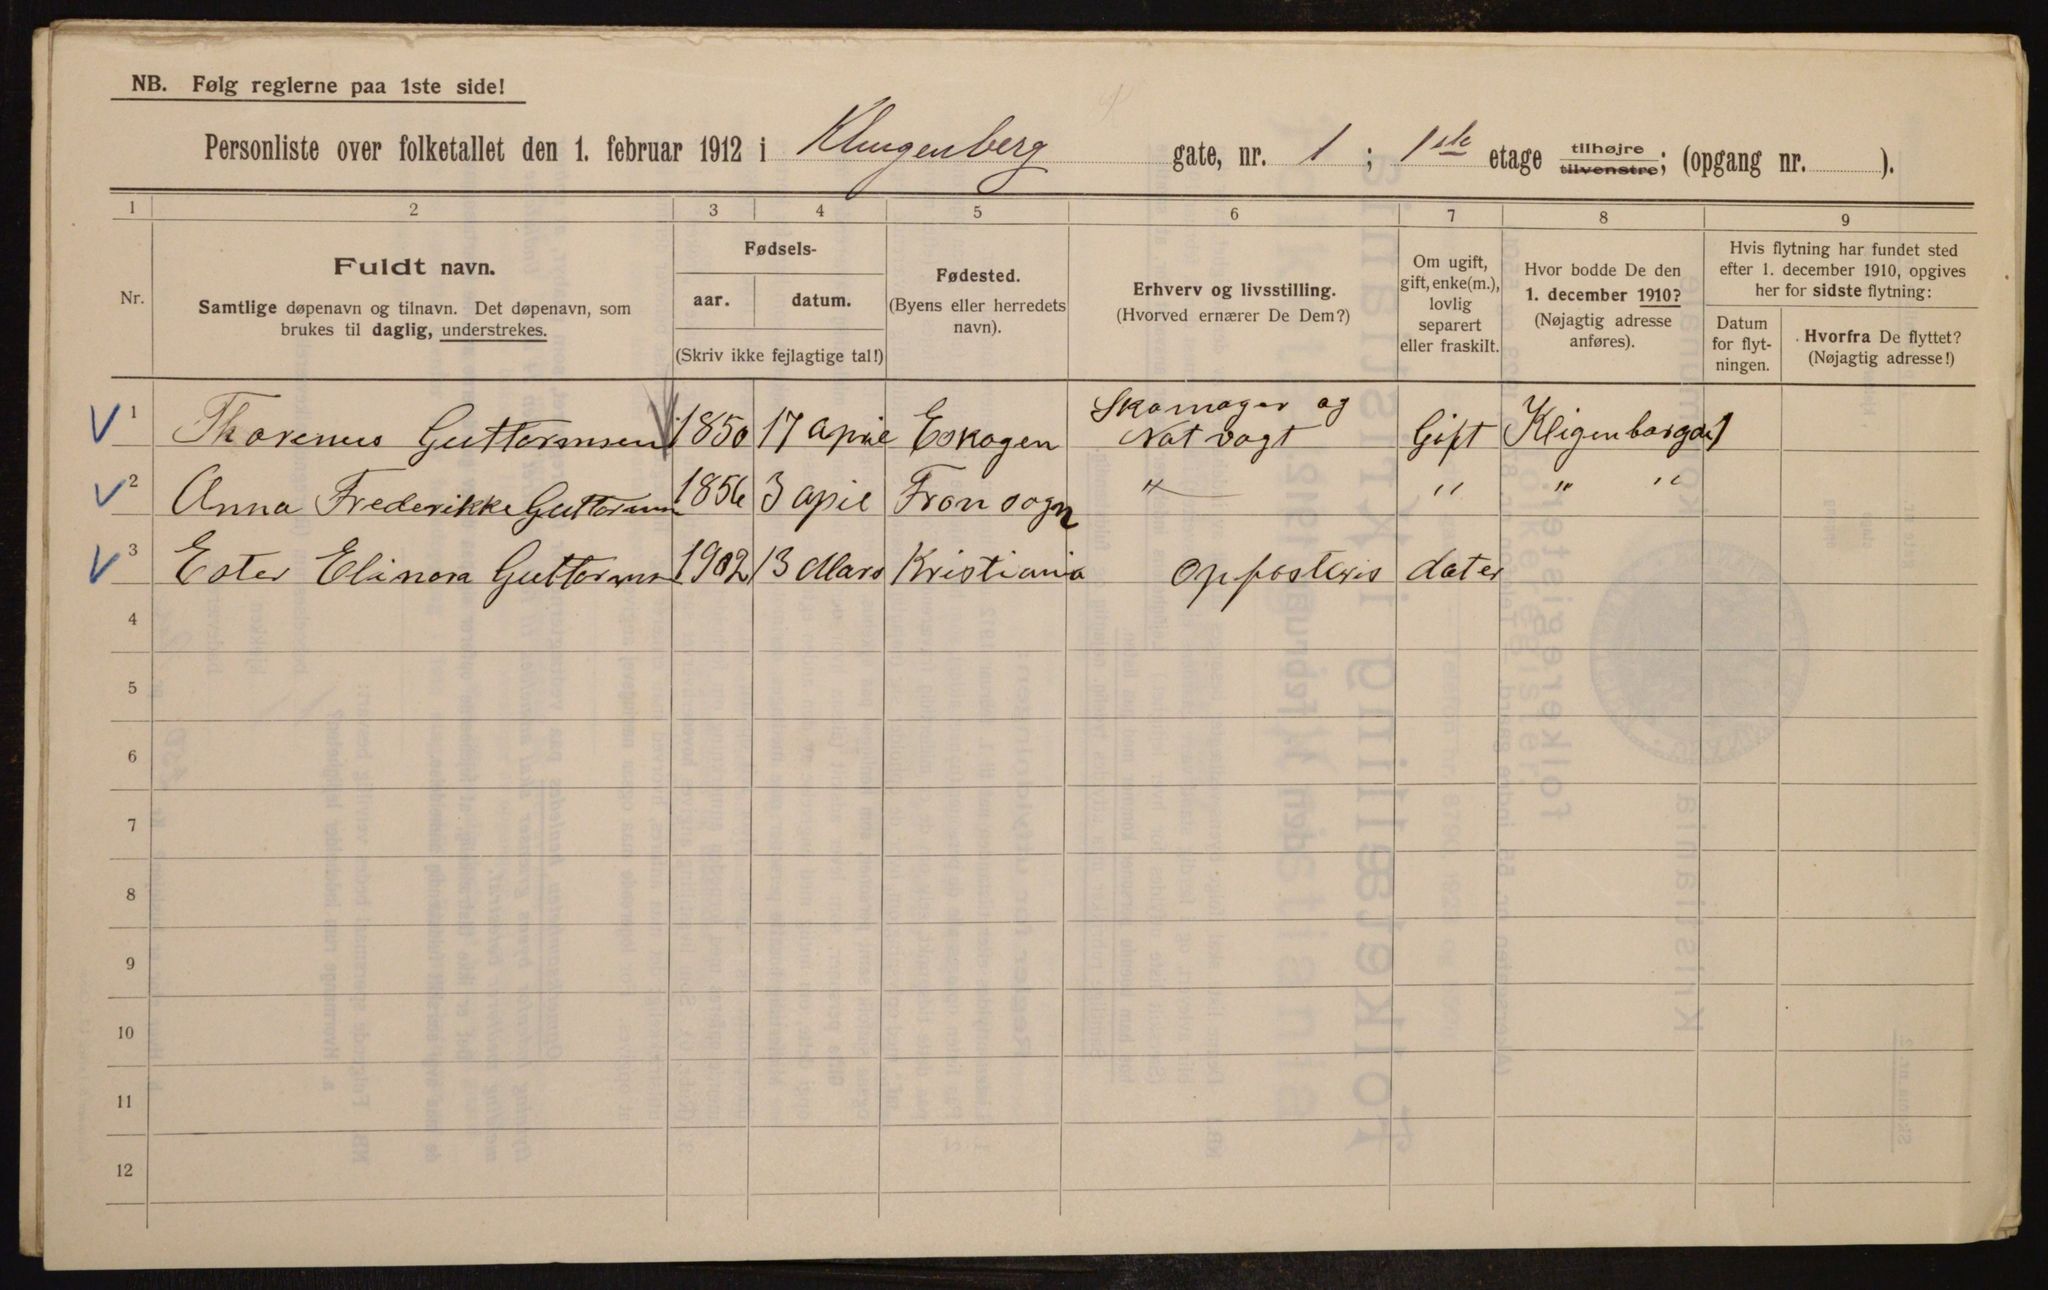 NB. Følg reglerne paa 1ste side!
Personliste over folketallet den 1. februar 1912 i Klingenberg gate, nr. 1 ; 1ste etage tilhøjre tilvenstre; (opgang nr. ).
1 2 3 4 5 6 7 8 9
Nr.
Fuldt navn.
Samtlige døpenavn og tilnavn. Det døpenavn, som
brukes til daglig, understrekes.
Fødsels-
aar. datum.
(Skriv ikke fejlagtige tal!)
Fødested.
(Byens eller herredets
navn).
Erhverv og livsstilling.
(Hvorved ernærer De Dem?)
Om ugift,
gift, enke(m.),
lovlig
separert
eller fraskilt.
Hvor bodde De den
1. december 1910?
(Nøjagtig adresse
anføres).
Hvis flytning har fundet sted
efter 1. december 1910, opgives
her for sidste flytning:
Datum
for flyt-
ningen.
Hvorfra De flyttet?
(Nøjagtig adresse!)
Skomager og
1 Thorenus Guttormsen 1850 17 april Eskogen Nat vagt Gift Kligenbargat 1
2 Anna Frederikke Guttormsen 1856 3 apil Fron sogn " " " "
3 Ester Elinora Guttormsen 1902 13 Mars Kristiania Opfosteris dater
4
5
6
7
8
9
10
11
12